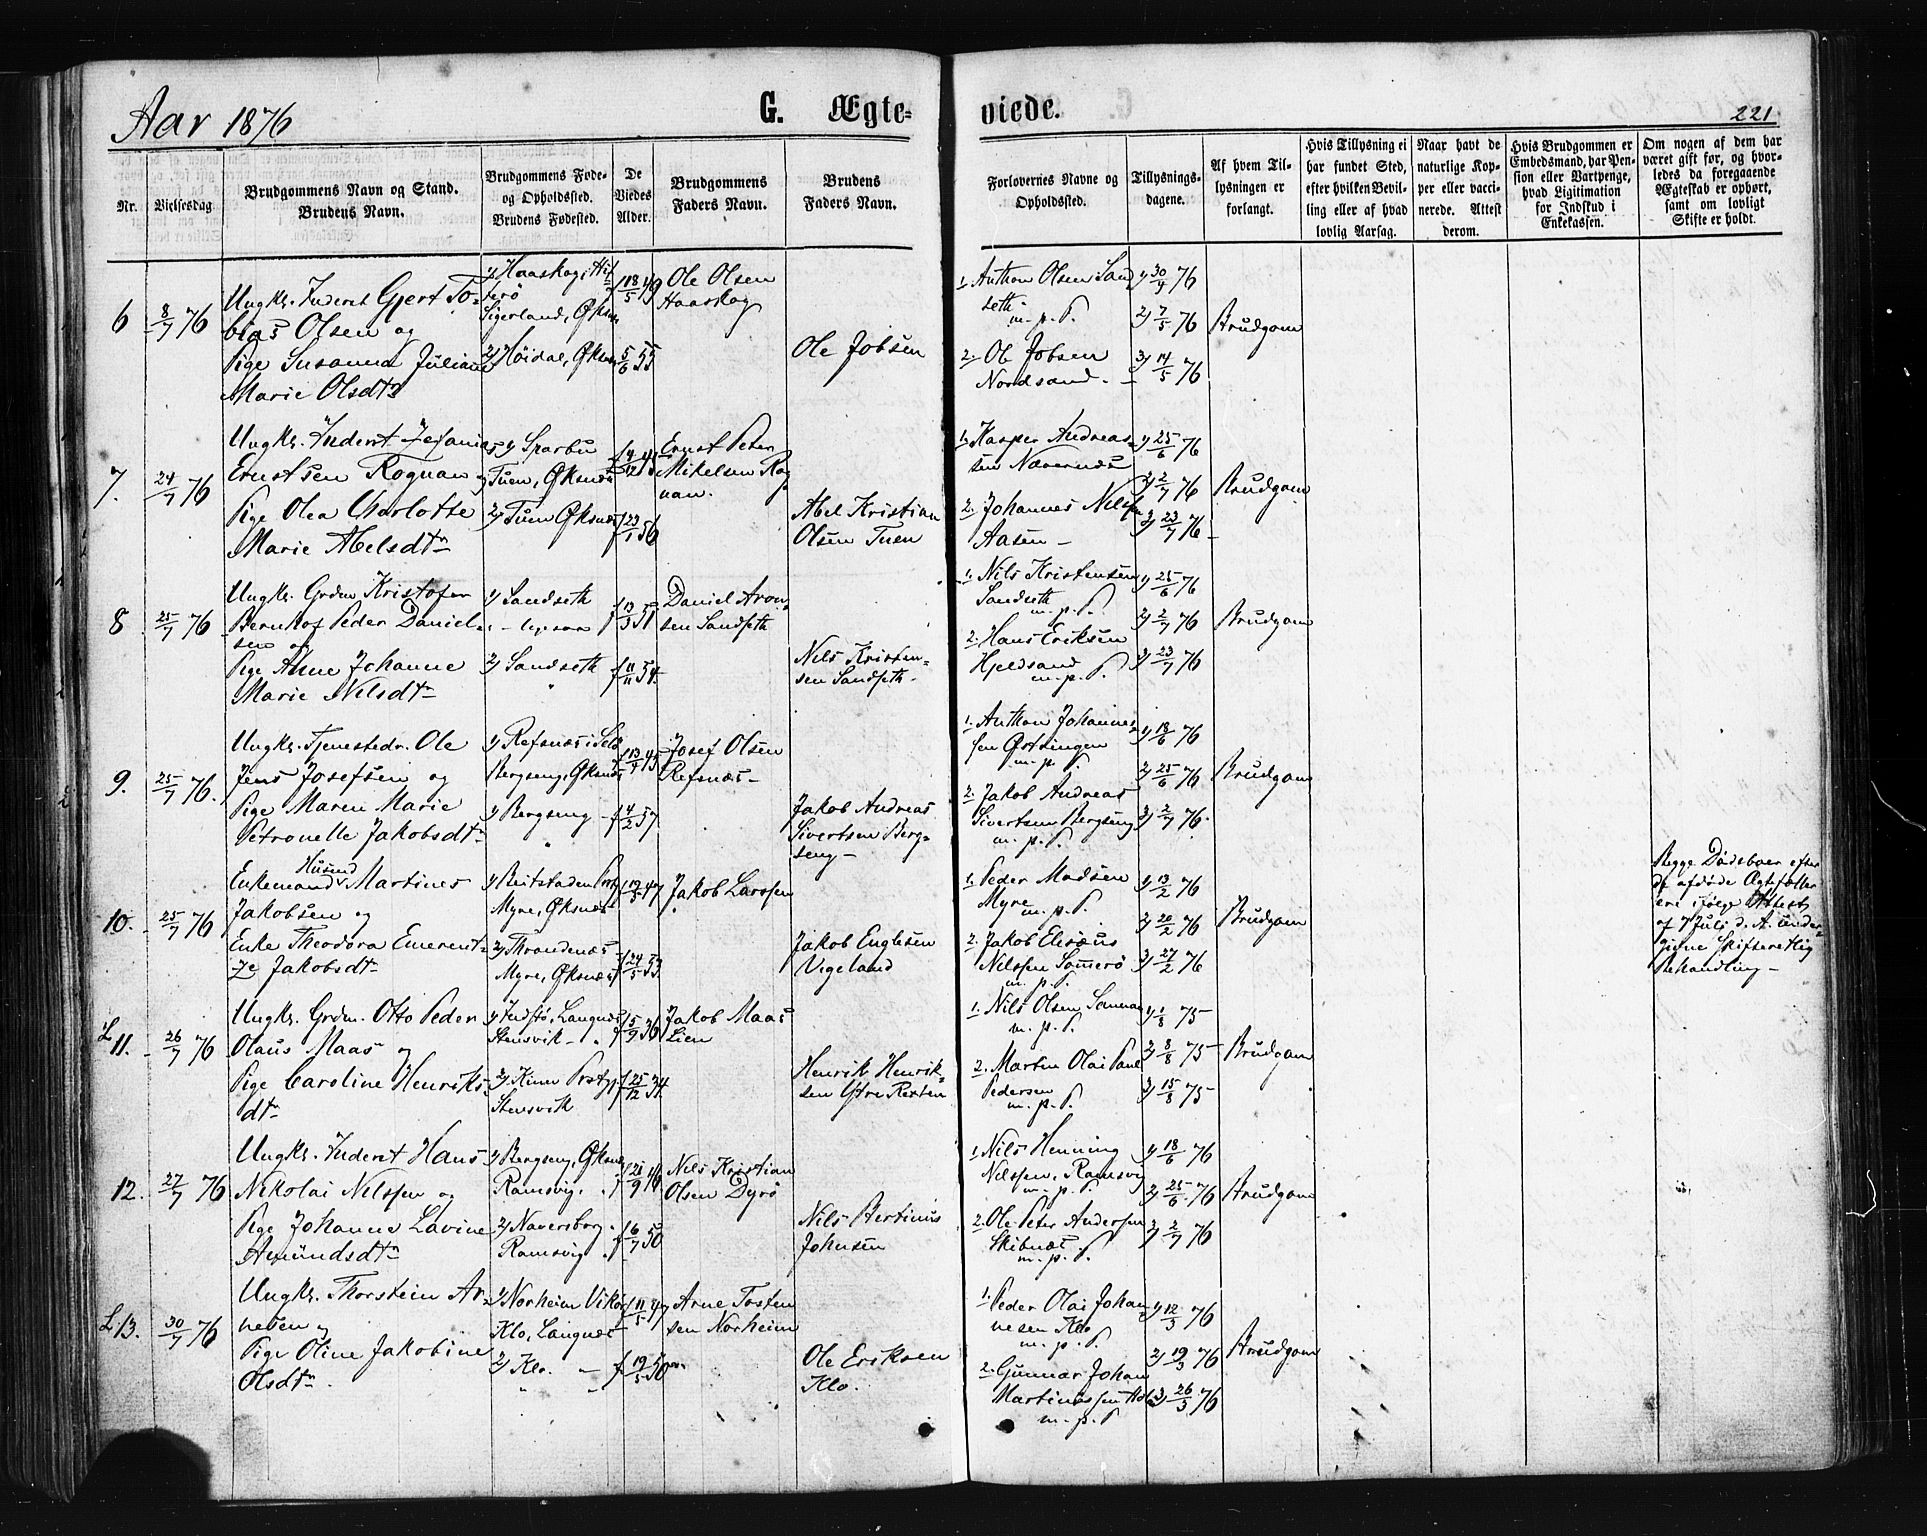 Aar 1876
G. Ægte-
viede.
221
Nr.
Vielsesdag
Brudgommens Navn og Stand.
Brudens Navn.
Brudgommens Føde-
og Opholdssted.
Brudens Fødested.
De
Viedes
Alder.
Brudgommens
Faders Navn.
Brudens
Faders Navn.
Forlovernes Navne og
Opholdssted.
Tillysnings-
dagene.
Af hvem Til-
lysningen er
forlangt.
Hvis Tillysning ei
har fundet Sted,
efter hvilken Bevil-
ling eller af hvad
lovlig Aarsag.
Naar havt de
naturlige Kop-
per eller vacci-
nerede. Attest
derom.
Hvis Brudgommen er
Embedsmand, har Pen-
sion eller Vartpenge,
hvad Ligitimation
for Indskud i
Enkekassen.
Om nogen af dem har
været gift før, og hvor-
ledes da foregaaende
Ægteskab er ophørt,
samt om lovligt
Skifte er holdt.
6
8/7 76
Ungk. Inderst Gjert To-
bias Olsen og
Pige Susanna Juliane
Marie Olsdtr
1) Haaskog i Hit-
terø
Sigerland, Øksn.
2) Høidal, Øksn.
f 18/5 49
5/6 55
Ole Olsen
Haaskog
Ole Jobsen
1. Anthon Olsen Sand
seth
m. p. P.
2. Ole Jobsen
Nordsand. –
1) 30/4 76
2) 7/5 76
3) 14/5 76
Brudgom
7.
24/7 76
Ungk. Inderst Zefanias
Ernstsen Rognan og
Pige Olea Charlotte
Marie Abelsdtr
1) Sparbu
Tuen, Øksnæs
2) Tuen Øksnæs
f 23/1 56
Ernst Peter
Mikelsen Rog-
nan.
Abel Kristian
Olsen Tuen
1. Kasper Andreas-
sen Nævernæs
2. Johannes Nilsen
Aasen –
1) 25/6 76
2) 2/7 76
3) 23/7 76
Brudgom
8.
25/7 76
Ungk. Grdm Kristofer
Bernhof Peder Daniel-
sen og
Pige Anne Johanne
Marie Nilsdtr
1) Sandseth
2) Sandseth
f 13/3 51
f 11/11 54
Daniel Aron-
sen Sandseth
Nils Kristen-
sen Sandseth.
1. Nils Kristensen
Sandseth
m. p. P.
2. Hans Eriksen
Hjeldsand
m. p. P.
1) 25/6 76
2) 2/7 76
3) 23/7 76
Brudgom
9.
25/7 76.
Ungk. Tjenestedr. Ole
Jens Josefsen og
Pige Maren Marie
Petronelle Jakobsdtr
1) Refsnæs i Selø
Bergseng, Øksnæs
2) Bergseng –
f 4/2 57
Josef Olsen
Refsnæs –
Jakob Andreas
Sivertsen Berg-
seng –
1. Anthon Johannes-
sen
m. p. P.
2. Jakob Andreas
Sivertsen Bergseng
m. p. P.
1) 18/6 76
2) 25/6 76
3) 2/7 76.
Brudgom
10.
25/7 76
Husmd
Enkemand Martines
Jakobsen og
Enke Theodora Emerent-
ze Jakobsdtr
Myre, Øksnæs
2) Throndenæs
Myre, Øksnæs
f 24/5 53
Jakob Larssen
Jakob Englesen
Vigeland
1. Peder Madsen
Myre
m. p. P.
2. Jakob Elisæus
Nilssen Sommerø
m. p. P.
1) 13/2 76
2) 20/2 76
3) 27/2 76
Brudgom
Begge Dødsboer efter
de afdøde Ægtefæller
ere ifølge Attest
af 7 Juli d. A. under-
givne Skifteretlig
Behandling –
L 11.
26/7 76
Ungk. Grdm. Otto Peder
Olaus Maas og
Pige Caroline Henriks-
dtr
Stensvik –
Stensvik
f 5/9 36
f 25/12 34
Jakob Maas
Lien
Henrik Henrik-
sen
1. Nils Olsen
m. p. P.
2. Martin Olai Paul
Pedersen
m. p. P.
1) 1/8 75
2) 8/8 75
3) 15/8 75
Brudgom
12.
27/7 76
Ungk. Inderst Hans
Nikolai Nilssen og
Pige Johanne Lavine
Amundsdtr
1) Bergseng, Øksnæs
Ramsvig.
2) Naversborg
Ramsvig
f 6/7 50
Nils Kristian
Olsen Dyrø
Nils Bertinus
Johnsen
1. Nils Henning
Nilssen, Ramsvig
m. p. P.
2. Ole Peter Andersen
Skibnæs
m. p. P.
1) 18/6 76
2) 25/6 76
3) 2/7 76
Brudgom
L 13.
30/7 76
Ungk. Thorstein Ar-
nesen og
Pige Oline Jakobine
Olsdtr
1) Norheim Vikør
Klo, Langnæs
2) Klo.
f 11/5 47
f 19/5 50
Arne Tosten
sen Norheim
Ole Eriksen
Klo.
1. Peder Olai Johan
nesen Klo
m. p. P.
2. Gunnar Johan
m. p. P
1) 12/3 76
2) 19/3 76
3) 26/3 76
Brudgom